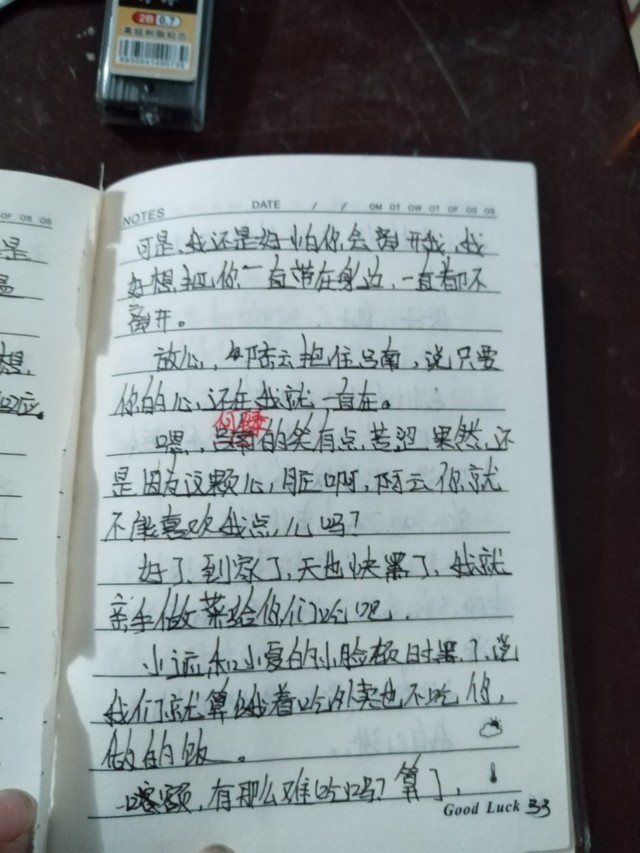 2B 0.7
高级树脂铅芯
NOTES DATE / / OM OT OW OT OF OS OS
可是,我还是好怕你会离开我,我
好想把你一直带在身边,一直都不
离开。
放心,陆云抱住吕南,说只要
你的心还在我就一直在。
何臻
嗯,吕南的笑有点苦涩果然,还
是因为这颗心脏啊,阿云你就
不能喜欢我点儿吗?
好了,到家了,天也快黑了,我就
亲手做菜给你们吃吧.
小远和小爱的小脸顿时黑了,说
我们就算饿着吃外卖也不吃你,
做的饭。
噗额,有那么难吃吗?算了,
Good Luck 33
OF OS OS
是
想,
回应。